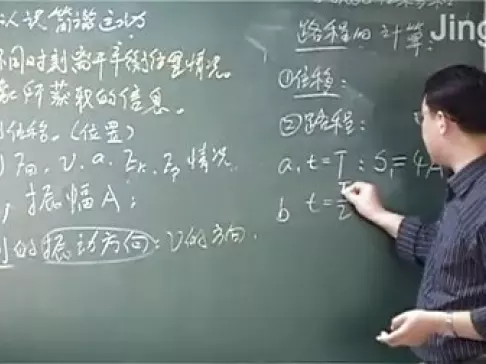 认识简谐运动
不同时刻离平衡位置情况。
所获取的信息。
位移。(位置)
F回, v. a. Ek. Ep 情况
, 振幅A;
的振动方向: v的方向.
路程的计算:
①位移:
②路程:
a, t = T : S = 4A
b t = T/2
Jing